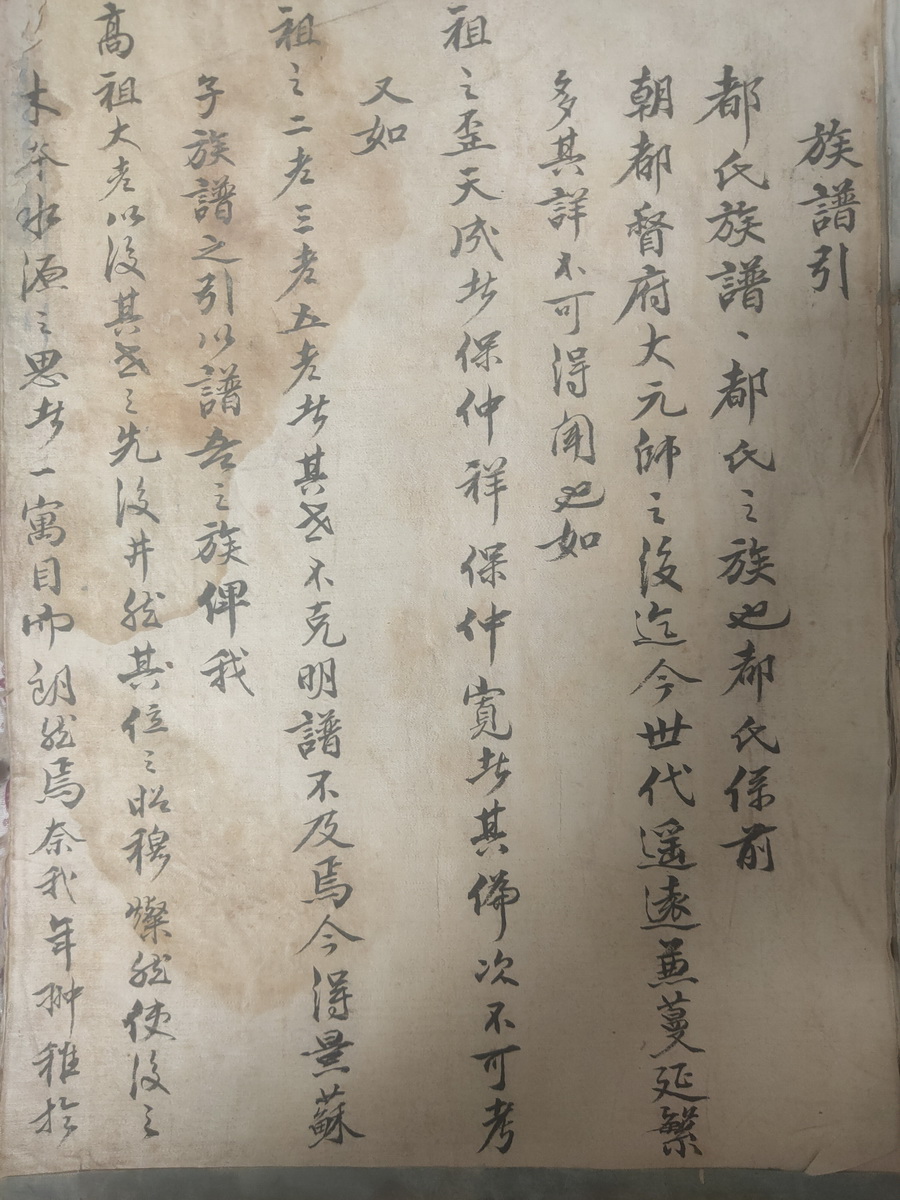 族譜引
都氏族譜、都氏之族也都氏係前
朝都督府大元帥之後迄今世代遥遠蔓延繁
多其詳不可得聞也如
祖之丕天成者保仲祥保仲寬者其倫次不可考
又如
祖之二老三老五老者其世不克明譜不及焉今得蘇
子族譜之引以譜吾之族俾我
高祖大老以後其世之先後井然其位之昭穆燦然使後之
木本水源之思者一寓目而朗然焉奈我年翀稚於